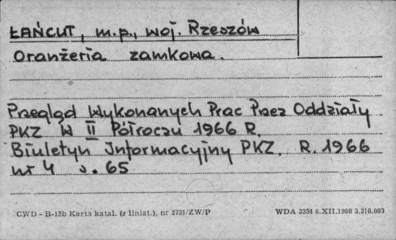 ŁAŃCUT, m.p., woj. Rzeszów
Oranżeria zamkowa.
Przegląd Wykonanych Prac Przez Oddziały
PKZ w II Półroczu 1966 R.
Biuletyn Informacyjny PKZ. R. 1966
nr 4 s. 65
CWD - B-15b Karta katal. (z liniat.), nr 2731/ZW/P WDA 3354 6.XII.1960 3.310.000